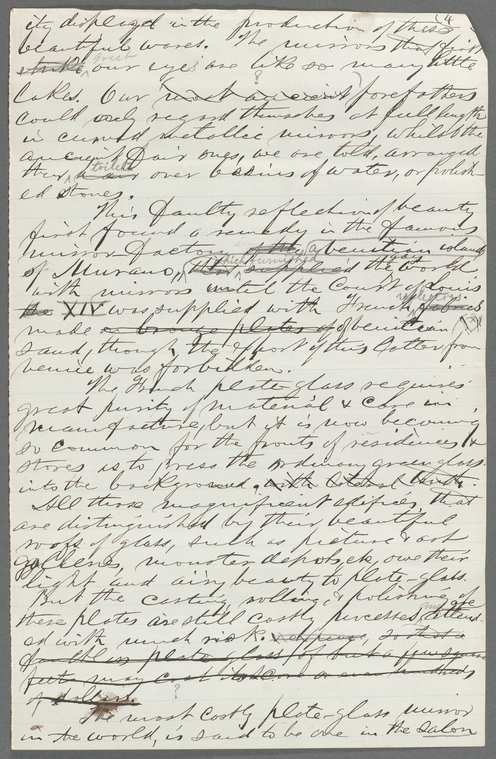 (4
ity displayed in the production of these
beautiful wares. The mirrors that first
strike greet our eyes are like so many little
lakes. Our most ancient forefathers
could only regard themselves at full length
in curved metallic mirrors, whilst the
ancient Fair ones, we are told, arranged
their hair toilet over basins of water, or polish-
ed stones.
This Faulty reflection of beauty
first found a remedy in the famous
mirror Factory of the a venitian island
of Murano, which furnished supplied the world
with mirrors until the Court of Louis
the XIV was supplied with French
made of venitian
sand, though the export of this latter from
Venice was forbidden.
The French plate-glass requires
great purity of material & care in
manufacture, but it is now becoming
so common for the fronts of residences &
stores as to press the ordinary green glass
into the background,
All those magnificent edifices, that
are distinguished by their beautiful
roofs of glass, such as picture & art
galleries, monster depots, &c, owe their
light and airy beauty to plate-glass.
But the casting, rolling, & polishing of
these plates are still costly processes, attend-
ed with much risk. so that a
faultless plate glass of but a few square
feet may cost
of dollars.
The most costly plate-glass mirror
in the world, is said to be one in the Salon